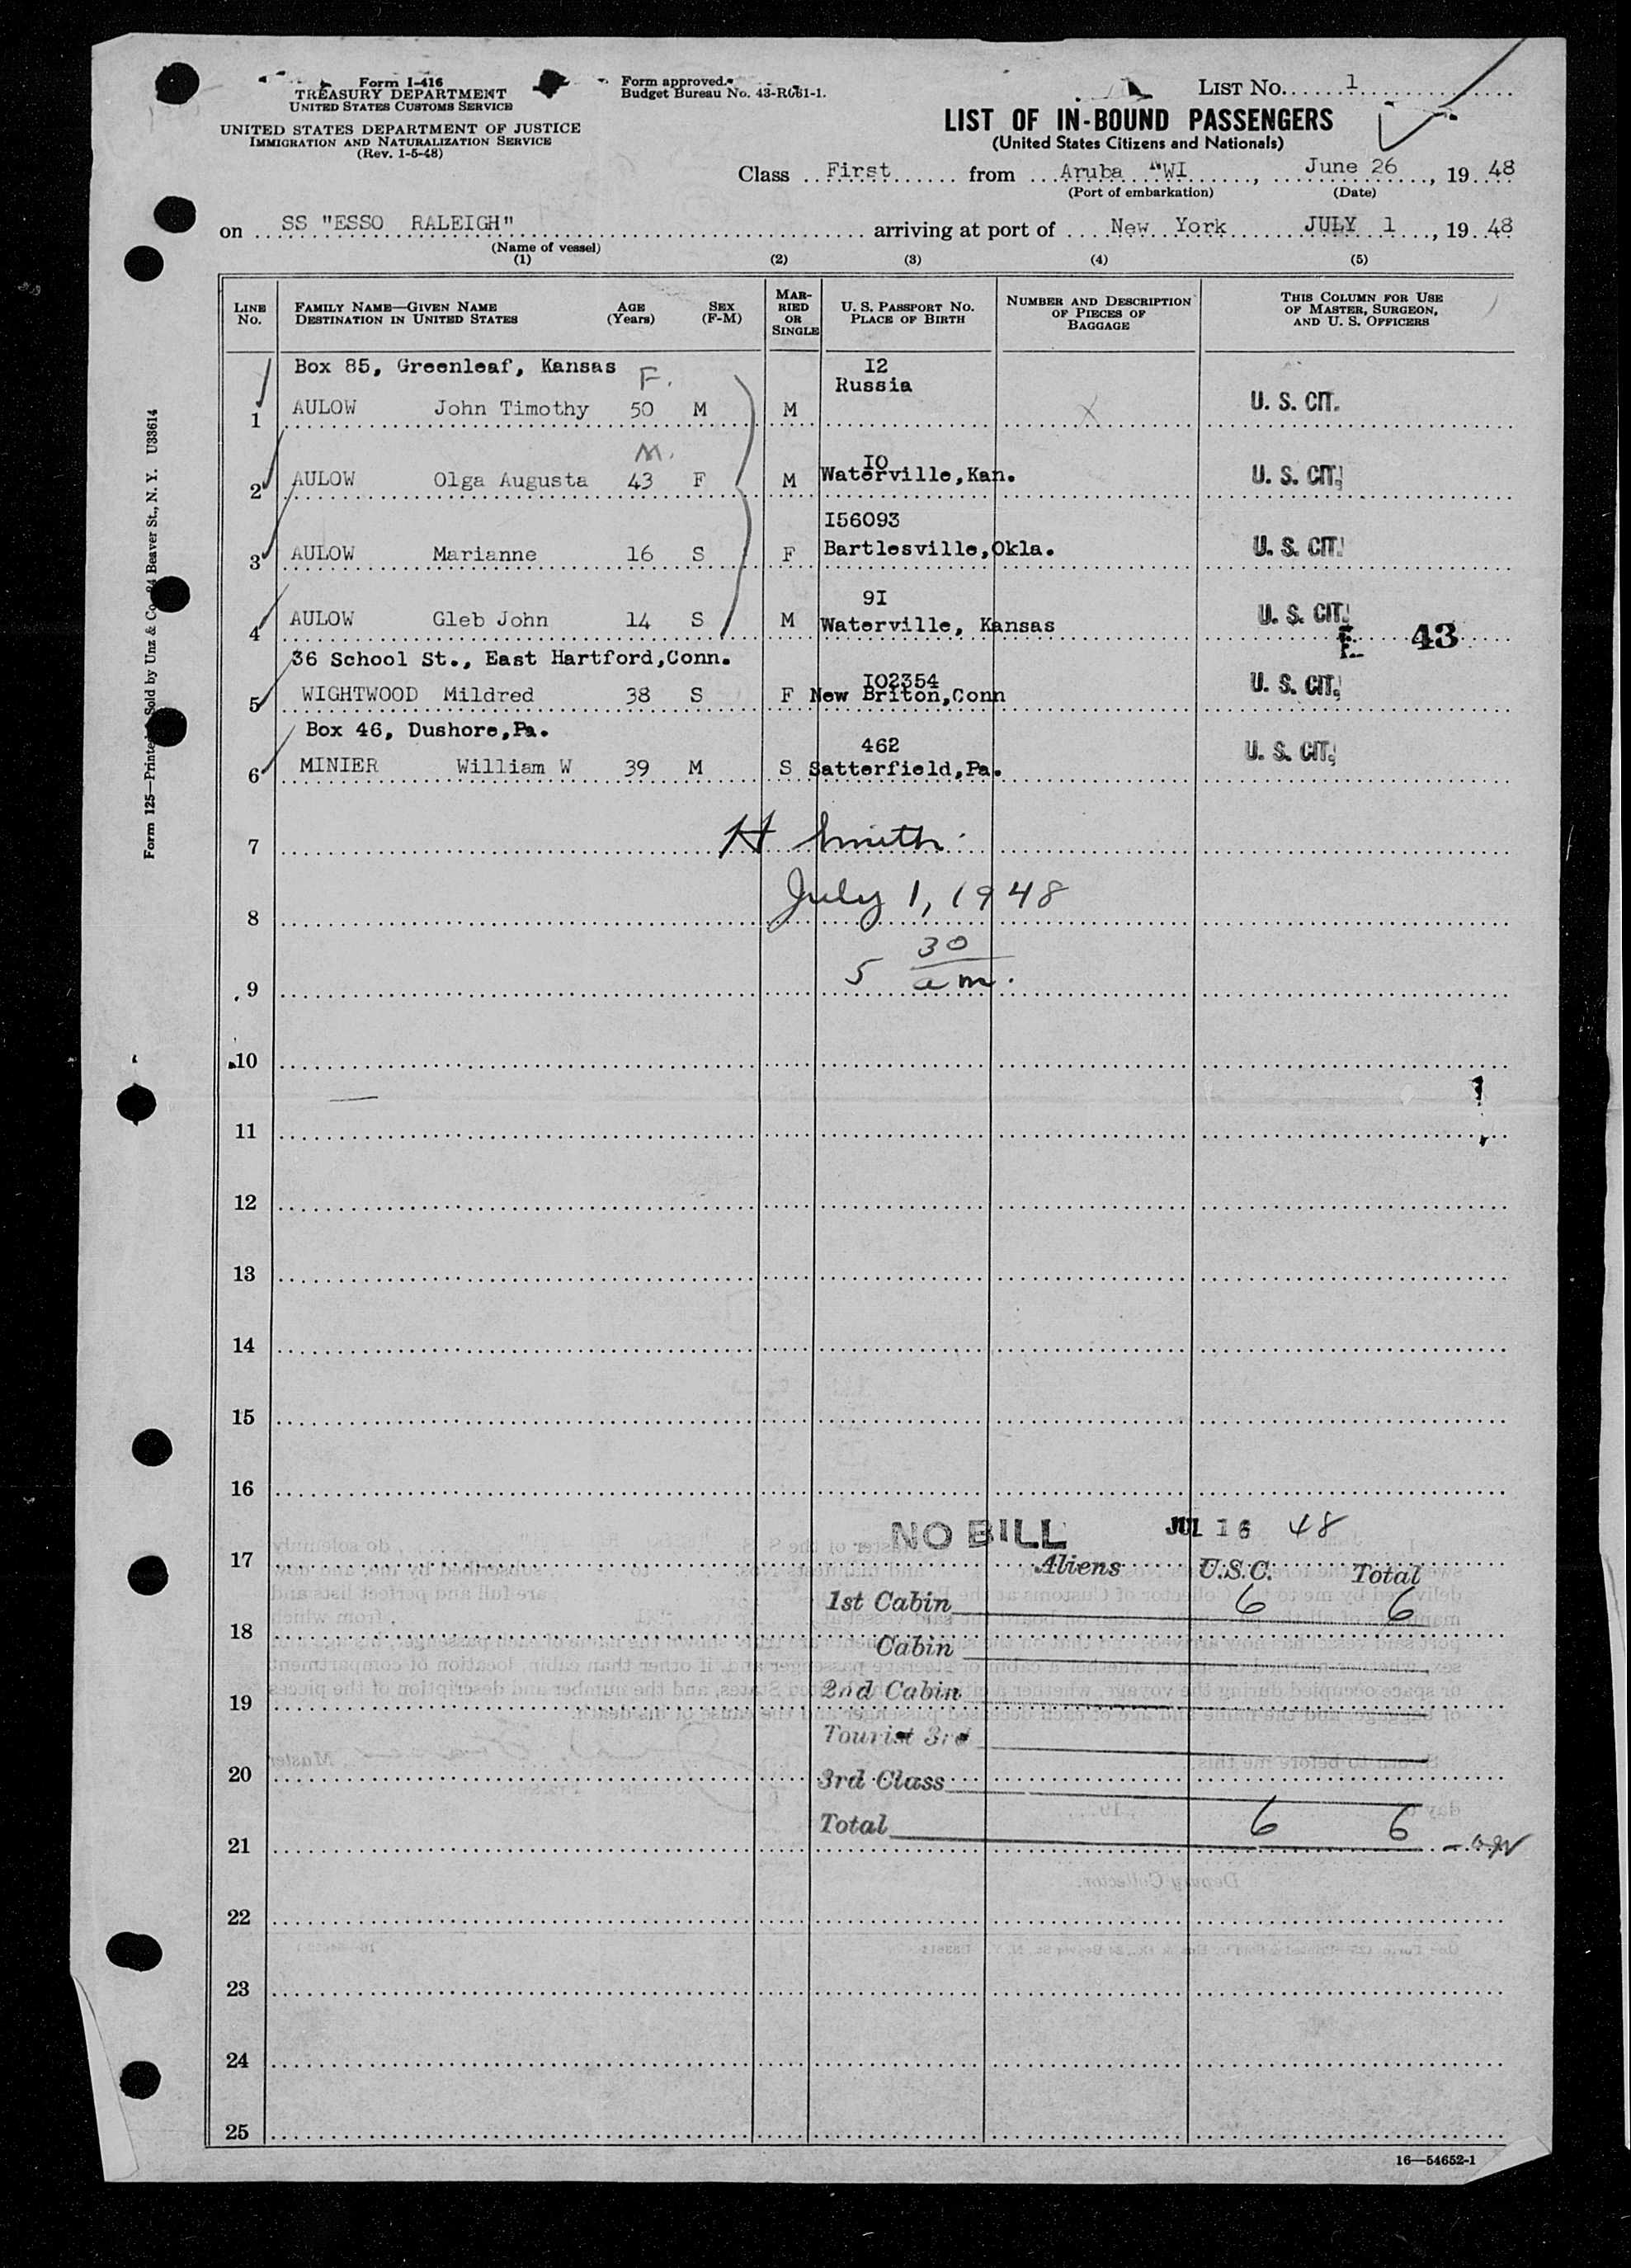 Form I-416
TREASURY DEPARTMENT
UNITED STATES CUSTOMS SERVICE
UNITED STATES DEPARTMENT OF JUSTICE
IMMIGRATION AND NATURALIZATION SERVICE
(Rev. 1-5-48)
Form approved.
Budget Bureau No. 43-R061-1.
LIST NO. 1
LIST OF IN-BOUND PASSENGERS
(United States Citizens and Nationals)
Class First from Aruba NWI, June 26, 1948
(Port of embarkation) (Date)
on SS "ESSO RALEIGH" arriving at port of New York JULY 1, 1948
(Name of vessel)
(1) (2) (3) (4) (5)
LINE No. FAMILY NAME—GIVEN NAME DESTINATION IN UNITED STATES AGE (Years) SEX (F-M) MARRIED OR SINGLE U. S. PASSPORT NO. PLACE OF BIRTH NUMBER AND DESCRIPTION OF PIECES OF BAGGAGE THIS COLUMN FOR USE OF MASTER, SURGEON, AND U. S. OFFICERS
Box 85, Greenleaf, Kansas F. I2
Russia
1 AULOW John Timothy 50 M M X U. S. CIT.
M. IO
2 AULOW Olga Augusta 43 F M Waterville,Kan. U. S. CIT.
I56093
3 AULOW Marianne 16 S F Bartlesville,Okla. U. S. CIT.
9I
4 AULOW Gleb John 14 S M Waterville, Kansas U. S. CIT.
E 43
36 School St., East Hartford,Conn.
IO2354
5 WIGHTWOOD Mildred 38 S F New Briton,Conn U. S. CIT.
Box 46, Dushore,Pa.
462
6 MINIER William W 39 M S Satterfield,Pa. U. S. CIT.
7 H Smith
8 July 1, 1948
9 5 30 am.
10
11
12
13
14
15
16
NO BILL JUL 16 48
17 Aliens U.S.C. Total
1st Cabin 6 6
18
Cabin
19 2nd Cabin
Tourist 3rd
20 3rd Class
Total 6 6
21
22
23
24
25
16—54652-1
Form 125—Printed & Sold by Unz & Co., 24 Beaver St., N. Y. U33614